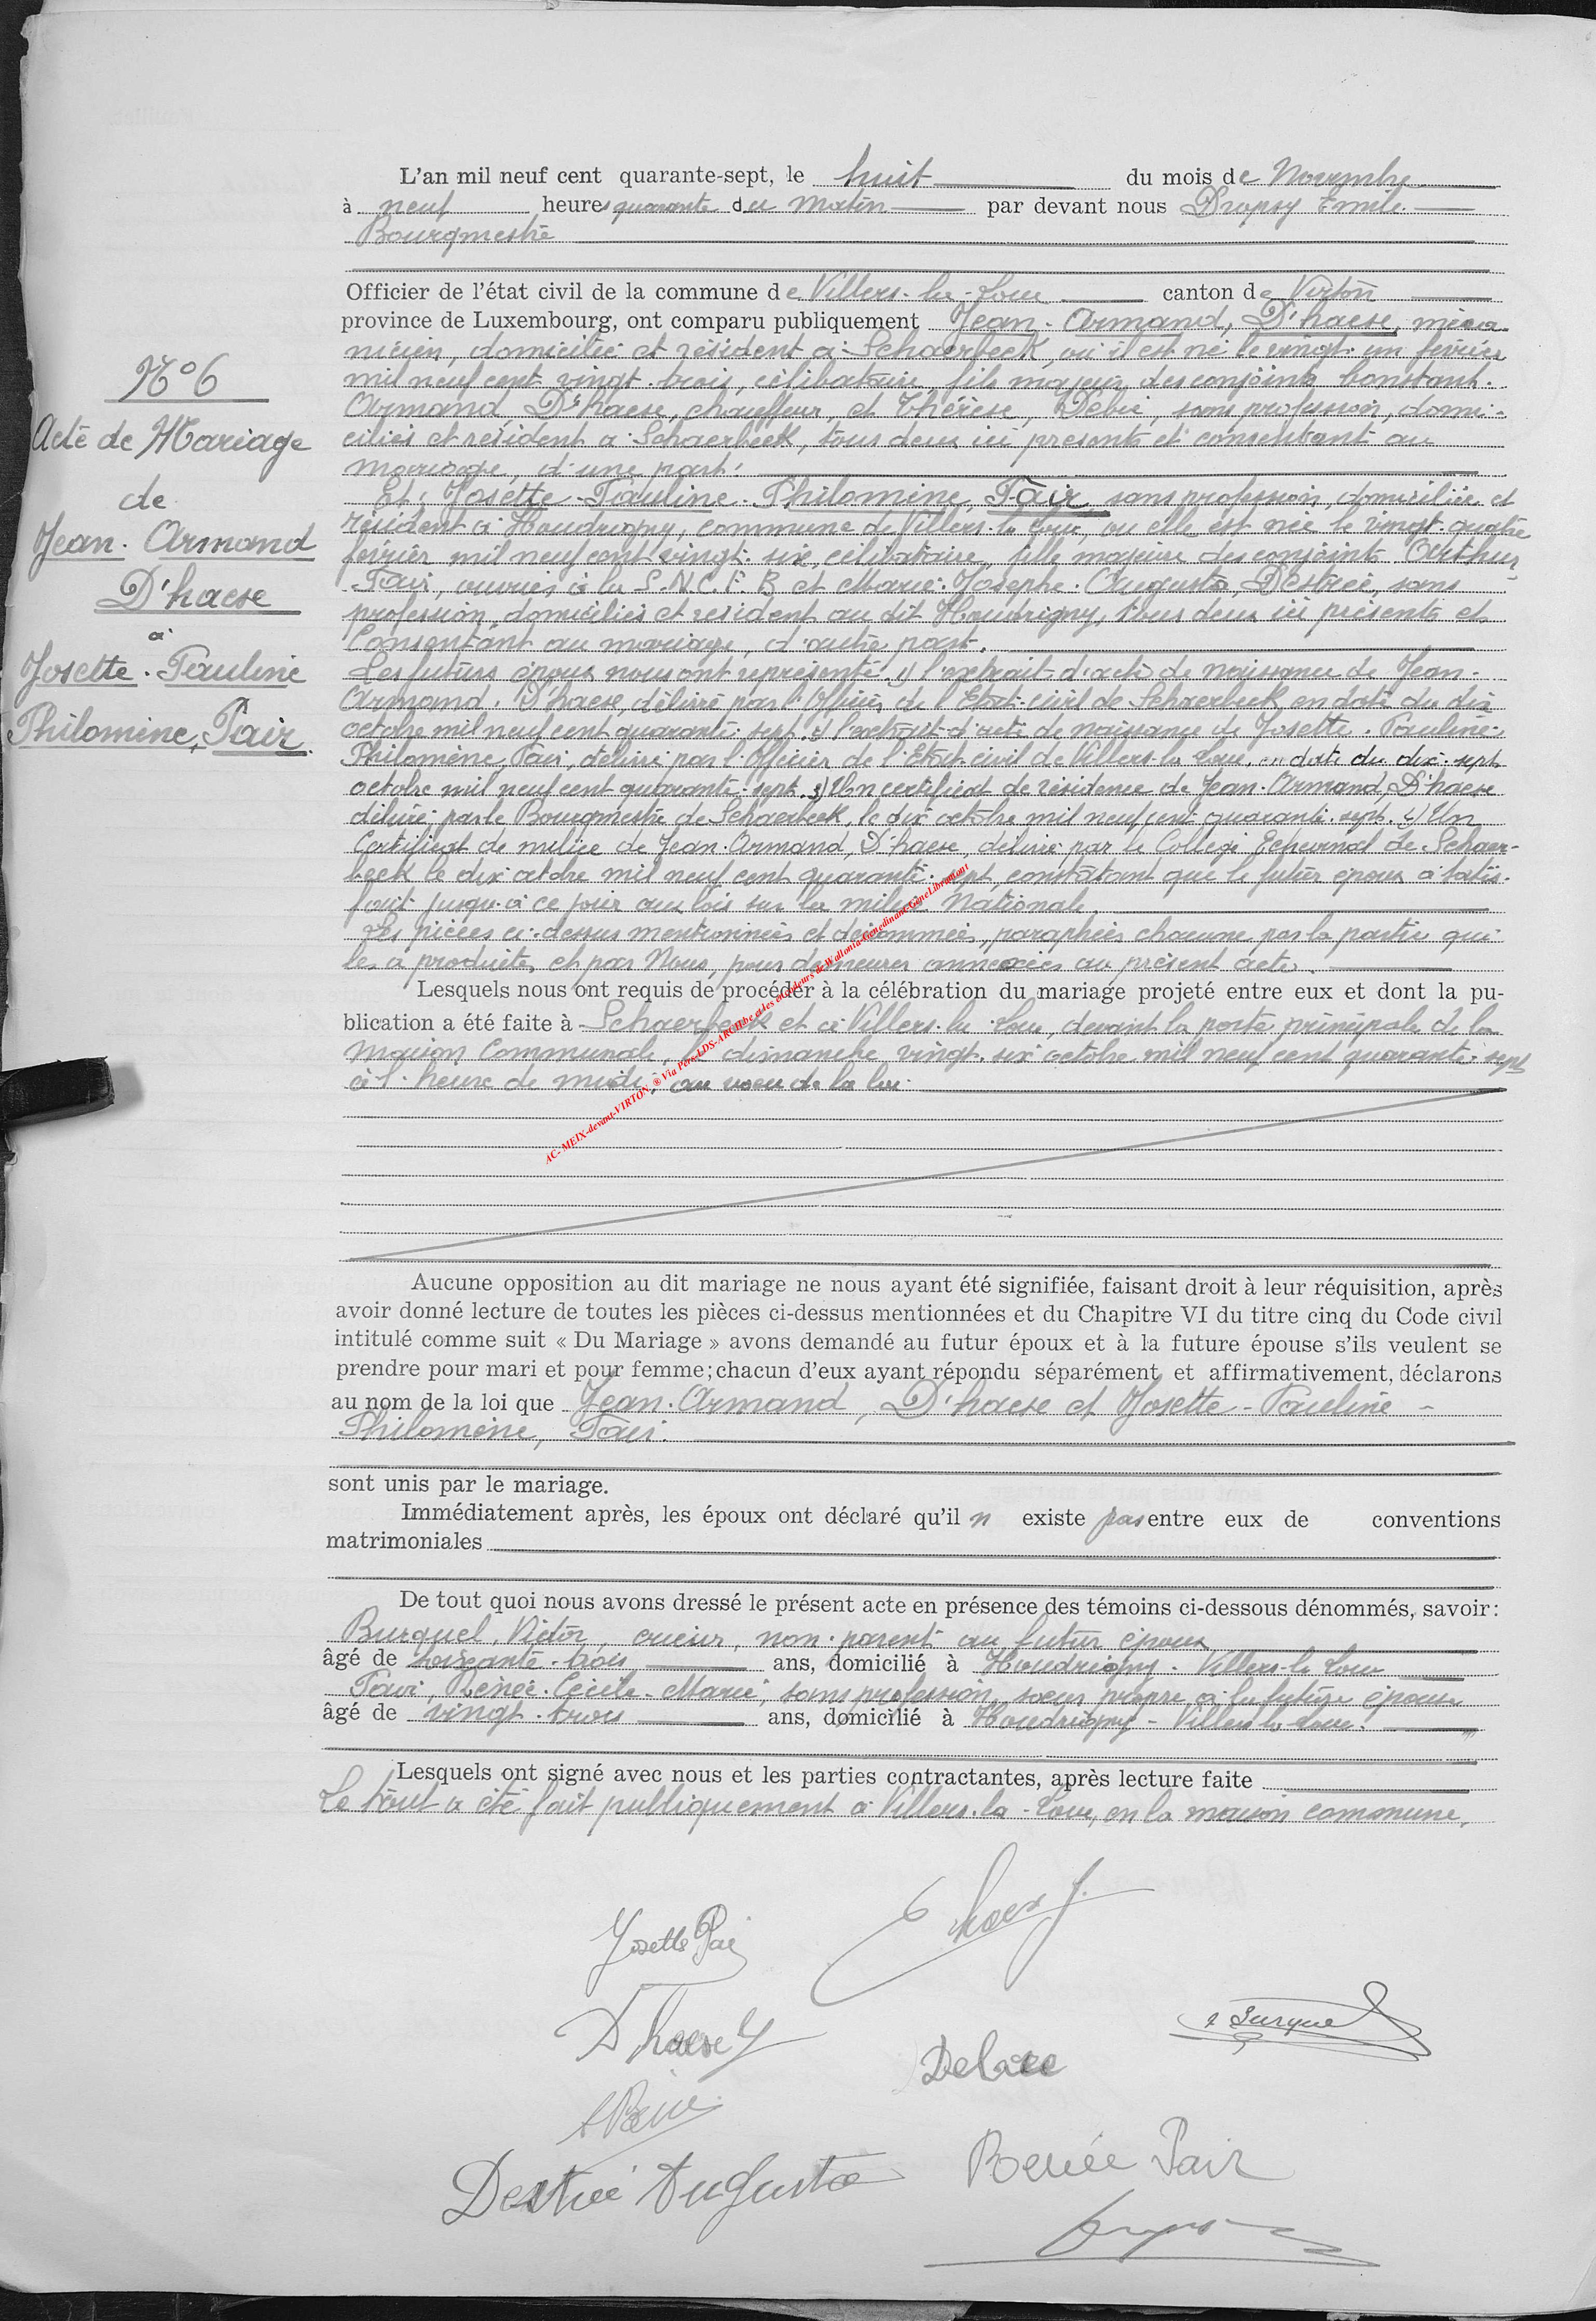 L'an mil neuf cent quarante-sept, le huit du mois de Novembre
à neuf heures quarante du matin par devant nous Dropsy Emile
Bourgmestre
Officier de l'état civil de la commune de Villers-la-Loue canton de Virton
province de Luxembourg, ont comparu publiquement Jean-Armand, D'haese, méca-
nicien, domicilié et résident à Schaerbeek, où il est né le vingt-un février
mil neuf cent vingt-trois, célibataire, fils majeur des conjoints Constant-
Armand, D'haese, chauffeur, et Thérèse, sans profession, domi-
ciliés et résident à Schaerbeek, tous deux ici présents et consentant au
mariage, d'une part;
Et; Josette-Pauline-Philomène, Pair sans profession, domiciliée et
résident à Houdrigny, commune de Villers-la-Loue, où elle est née le vingt-quatre
février mil neuf cent vingt-six, célibataire, fille majeure des conjoints Arthur
Pair, ouvrier à la S.N.C.F.B et Marie-Josephe-Augusta, Destrée, sans
profession, domiciliés et résident au dit Houdrigny, tous deux ici présents et
Consentant au mariage, d'autre part.
Les futurs époux nous ont représenté 1) l'extrait d'acte de naissance de Jean-
Armand, D'haese, délivré par l'Officier de l'Etat-civil de Schaerbeek en date du dix
octobre mil neuf cent quarante-sept. 2) l'extrait d'acte de naissance de Josette-Pauline-
Philomène Pair, délivré par l'Officier de l'Etat-civil de Villers-la-Loue, en date du dix-sept
octobre mil neuf cent quarante-sept. 3) Un certificat de résidence de Jean-Armand, D'haese
délivré par le Bourgmestre de Schaerbeek, le dix octobre mil neuf cent quarante-sept. 4) Un
Certificat de milice de Jean-Armand, D'haese, délivré par le Collège Echevinal de Schaer-
beek le dix octobre mil neuf cent quarante-sept, constatant que le futur époux a satis-
fait jusqu'à ce jour aux lois sur la milice Nationale.
Les pièces ci-dessus mentionnées et dénommées, paraphées chacune par la partie qui
les a produites et par Nous, pour demeurer annexées au présent acte.
Lesquels nous ont requis de procéder à la célébration du mariage projeté entre eux et dont la pu-
blication a été faite à Schaerbeek et à Villers-la-Loue, devant la porte principale de la
Maison Communale, le dimanche vingt-six octobre mil neuf cent quarante-sept
à l'heure de midi; au voeu de la loi.
N°6
Acte de Mariage
de
Jean-Armand
D'haese
à
Josette-Pauline
Philomène, Pair.
AC-MEIX-devant-VIRTON. ® Via Père-LDS-ARCH.be et les encodeurs de Wallonia-Genedinant-GeneLibramont
Aucune opposition au dit mariage ne nous ayant été signifiée, faisant droit à leur réquisition, après
avoir donné lecture de toutes les pièces ci-dessus mentionnées et du Chapitre VI du titre cinq du Code civil
intitulé comme suit « Du Mariage » avons demandé au futur époux et à la future épouse s'ils veulent se
prendre pour mari et pour femme; chacun d'eux ayant répondu séparément et affirmativement, déclarons
au nom de la loi que Jean-Armand, D'haese et Josette-Pauline-
Philomène, Pair.
sont unis par le mariage.
Immédiatement après, les époux ont déclaré qu'il n existe pas entre eux de conventions
matrimoniales
De tout quoi nous avons dressé le présent acte en présence des témoins ci-dessous dénommés, savoir:
Burquel, Victor, non-parent au futur époux
âgé de soixante-trois ans, domicilié à Houdrigny-Villers-la-Loue
Pair, Renée-Cécile-Marie, sans profession, soeur propre à la future épouse
âgé de vingt-trois ans, domicilié à Houdrigny-Villers-la-Loue.
Lesquels ont signé avec nous et les parties contractantes, après lecture faite
Le tout a été fait publiquement à Villers-la-Loue, en la maison commune.
Josette Pair
Dhaese J
Burquel
Destrée Augusta
Renée Pair